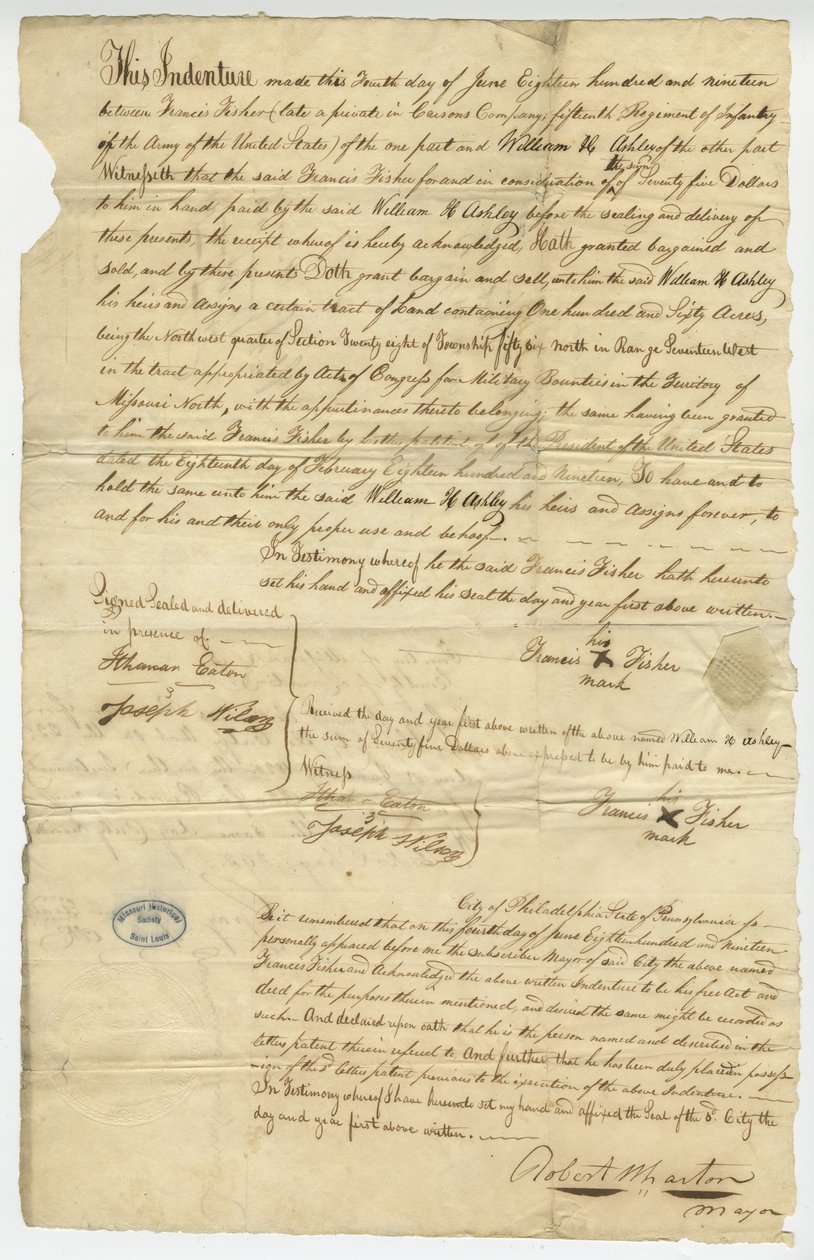 This Indenture made this Fourth day of June Eighteen hundred and nineteen
between Francis Fisher (late a private in Carsons Company, fifteenth Regiment of Infantry
of the Army of the United States) of the one part and William H Ashley of the other part
Witnesseth that the said Francis Fisher for and in consideration of the sum of Seventy five Dollars
to him in hand paid by the said William H Ashley before the sealing and delivery of
these presents, the receipt whereof is hereby acknowledged, Hath granted bargained and
sold, and by these presents Doth grant bargain and sell, unto him the said William H Ashley
his heirs and assigns a certain tract of Land containing One hundred and Sixty Acres,
being the North west quarter of Section Twenty eight of Township fifty six north in Range Seventeen West
in the tract appropriated by Acts of Congress for Military Bounties in the Territory of
Missouri North, with the appurtinances thereto belonging; the same having been granted
to him the said Francis Fisher by letters patent of of the President of the United States
dated the Eighteenth day of February Eighteen hundred and Nineteen, To have and to
hold the same unto him the said William H Ashley his heirs and assigns forever, to
and for his and their only proper use and behoof.
In Testimony whereof he the said Francis Fisher hath hereunto
set his hand and affixed his seal the day and year first above written.
Signed Sealed and delivered
in presence of.
Ithamar Eaton
Joseph Wilson
his
Francis X Fisher
mark
Received the day and year first above written of the above named William H Ashley
the sum of Seventy five Dollars above expressed to be by him paid to me.
Witness
Ithamar Eaton
Joseph Wilson
his
Francis X Fisher
mark
City of Philadelphia State of Pennsylvania ss
Be it remembered that on this fourth day of June Eighteen hundred and Nineteen
personally appeared before me the subscriber Mayor of said City the above named
Francis Fisher and Acknowledged the above written Indenture to be his free Act and
deed for the purposes therein mentioned, and desired the same might be recorded as
such. And declared upon oath that he is the person named and described in the
letters patent therein refered to And further, that he has been duly placed in possess
-sion of the sd letters patent previous to the execution of the above Indenture.
In Testimony whereof I have hereunto set my hand and affixed the Seal of the sd City the
day and year first above written.
Robert Wharton
Mayor
Missouri Historical
Society
Saint Louis